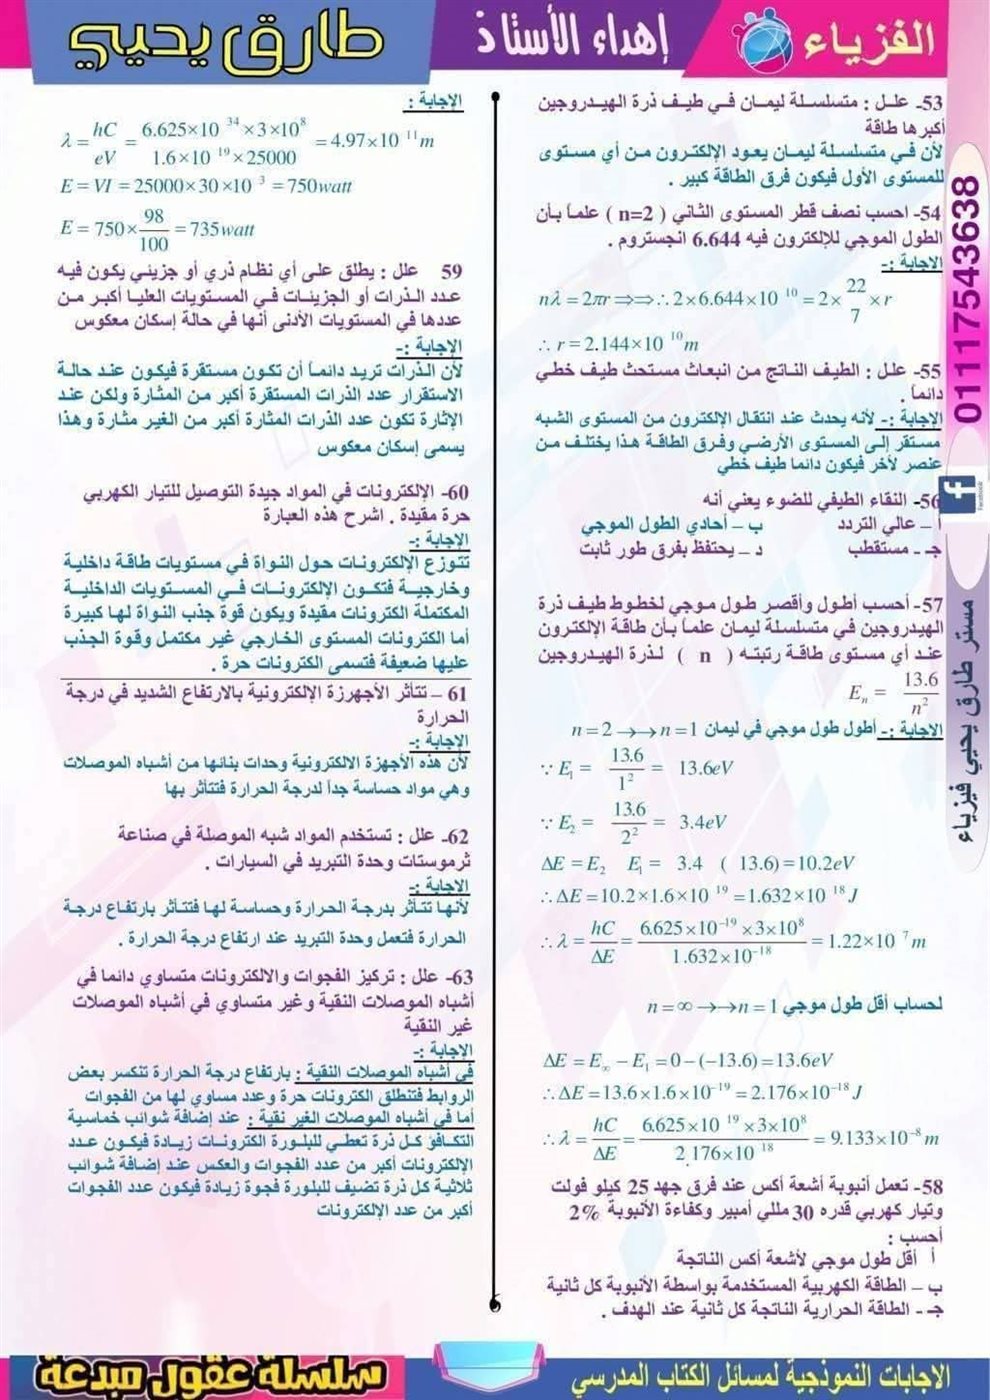 الفزياء
إهداء الأستاذ
طارق يحيي
53- علل : متسلسلة ليمان في طيف ذرة الهيدروجين
أكبرها طاقة
لأن في متسلسلة ليمان يعود الإلكترون من أي مستوى
للمستوى الأول فيكون فرق الطاقة كبير .
54- احسب نصف قطر المستوى الثاني ( n=2 ) علماً بأن
الطول الموجي للإلكترون فيه 6.644 انجستروم .
الإجابة :-
nλ = 2πr ⇒⇒∴ 2×6.644×10 10 = 2× 22/7 ×r
∴ r = 2.144×10 10 m
55- علل : الطيف الناتج من انبعاث مستحث طيف خطي
دائماً .
الإجابة :- لأنه يحدث عند انتقال الإلكترون من المستوى الشبه
مستقر إلى المستوى الأرضي وفرق الطاقة هذا يختلف من
عنصر لأخر فيكون دائما طيف خطي
56- النقاء الطيفي للضوء يعني أنه
أ – عالي التردد ب – أحادي الطول الموجي
جـ - مستقطب د – يحتفظ بفرق طور ثابت
57- أحسب أطول وأقصر طول موجي لخطوط طيف ذرة
الهيدروجين في متسلسلة ليمان علماً بأن طاقة الإلكترون
عند أي مستوى طاقة رتبته ( n ) لذرة الهيدروجين
Eₙ = 13.6/n²
الإجابة :- أطول طول موجي في ليمان n = 2 →→ n = 1
∵ E₁ = 13.6/1² = 13.6eV
∵ E₂ = 13.6/2² = 3.4eV
ΔE = E₂ E₁ = 3.4 ( 13.6) = 10.2eV
∴ ΔE = 10.2×1.6×10 19 = 1.632×10 18 J
∴ λ = hC/ΔE = 6.625×10⁻¹⁹ ×3×10⁸/1.632×10⁻¹⁸ = 1.22×10 7 m
لحساب أقل طول موجي n = ∞ →→ n = 1
ΔE = E∞ − E₁ = 0 − (−13.6) = 13.6eV
∴ ΔE = 13.6×1.6×10⁻¹⁹ = 2.176×10⁻¹⁸ J
∴ λ = hC/ΔE = 6.625×10 19 ×3×10⁸/2.176×10 18 = 9.133×10⁻⁸ m
58- تعمل أنبوبة أشعة أكس عند فرق جهد 25 كيلو فولت
وتيار كهربي قدره 30 مللي أمبير وكفاءة الأنبوبة 2%
أحسب :
أ أقل طول موجي لأشعة أكس الناتجة
ب – الطاقة الكهربية المستخدمة بواسطة الأنبوبة كل ثانية
جـ - الطاقة الحرارية الناتجة كل ثانية عند الهدف .
الإجابة :
λ = hC/eV = 6.625×10 34 ×3×10⁸/1.6×10 19 ×25000 = 4.97×10 11 m
E = VI = 25000×30×10 3 = 750watt
E = 750× 98/100 = 735watt
59 علل : يطلق على أي نظام ذري أو جزيئي يكون فيه
عدد الذرات أو الجزيئات في المستويات العليا أكبر من
عددها في المستويات الأدنى أنها في حالة إسكان معكوس
الإجابة :-
لأن الذرات تريد دائماً أن تكون مستقرة فيكون عند حالة
الاستقرار عدد الذرات المستقرة أكبر من المثارة ولكن عند
الإثارة تكون عدد الذرات المثارة أكبر من الغير مثارة وهذا
يسمى إسكان معكوس
60- الإلكترونات في المواد جيدة التوصيل للتيار الكهربي
حرة مقيدة . اشرح هذه العبارة
الإجابة :-
تتوزع الإلكترونات حول النواة في مستويات طاقة داخلية
وخارجية فتكون الإلكترونات في المستويات الداخلية
المكتملة الكترونات مقيدة ويكون قوة جذب النواة لها كبيرة
أما الكترونات المستوى الخارجي غير مكتمل وقوة الجذب
عليها ضعيفة فتسمى الكترونات حرة .
61 – تتأثر الأجهرزة الإلكترونية بالارتفاع الشديد في درجة
الحرارة
الإجابة :-
لأن هذه الأجهزة الالكترونية وحدات بنائها من أشباه الموصلات
وهي مواد حساسة جداً لدرجة الحرارة فتتأثر بها
62- علل : تستخدم المواد شبه الموصلة في صناعة
ثرموستات وحدة التبريد في السيارات .
الإجابة :-
لأنها تتأثر بدرجة الحرارة وحساسة لها فتتأثر بارتفاع درجة
الحرارة فتعمل وحدة التبريد عند ارتفاع درجة الحرارة .
63- علل : تركيز الفجوات والالكترونات متساوي دائما في
أشباه الموصلات النقية وغير متساوي في أشباه الموصلات
غير النقية
الإجابة :-
في أشباه الموصلات النقية : بارتفاع درجة الحرارة تنكسر بعض
الروابط فتنطلق الكترونات حرة وعدد مساوي لها من الفجوات
أما في أشباه الموصلات الغير نقية : عند إضافة شوائب خماسية
التكافؤ كل ذرة تعطي للبلورة الكترونات زيادة فيكون عدد
الإلكترونات أكبر من عدد الفجوات والعكس عند إضافة شوائب
ثلاثية كل ذرة تضيف للبلورة فجوة زيادة فيكون عدد الفجوات
أكبر من عدد الإلكترونات
01117543638
f
مستر طارق يحيي فيزياء
الاجابات النموذجية لمسائل الكتاب المدرسي
سلسلة عقول مبدعة